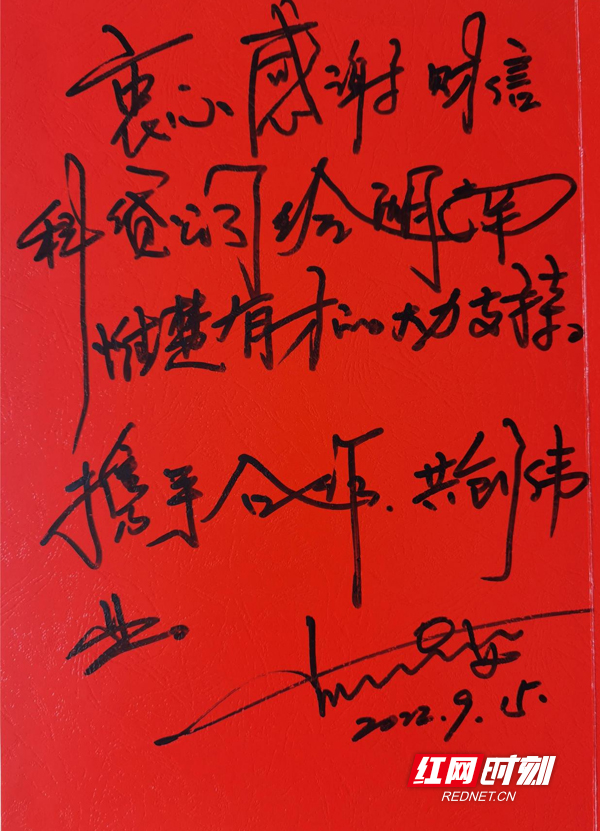 衷心感谢财信
科贷公司给湖南
惟楚有才的大力支持。
携手合作，共创伟
业。
2022.9.15.
红网时刻
REDNET.CN